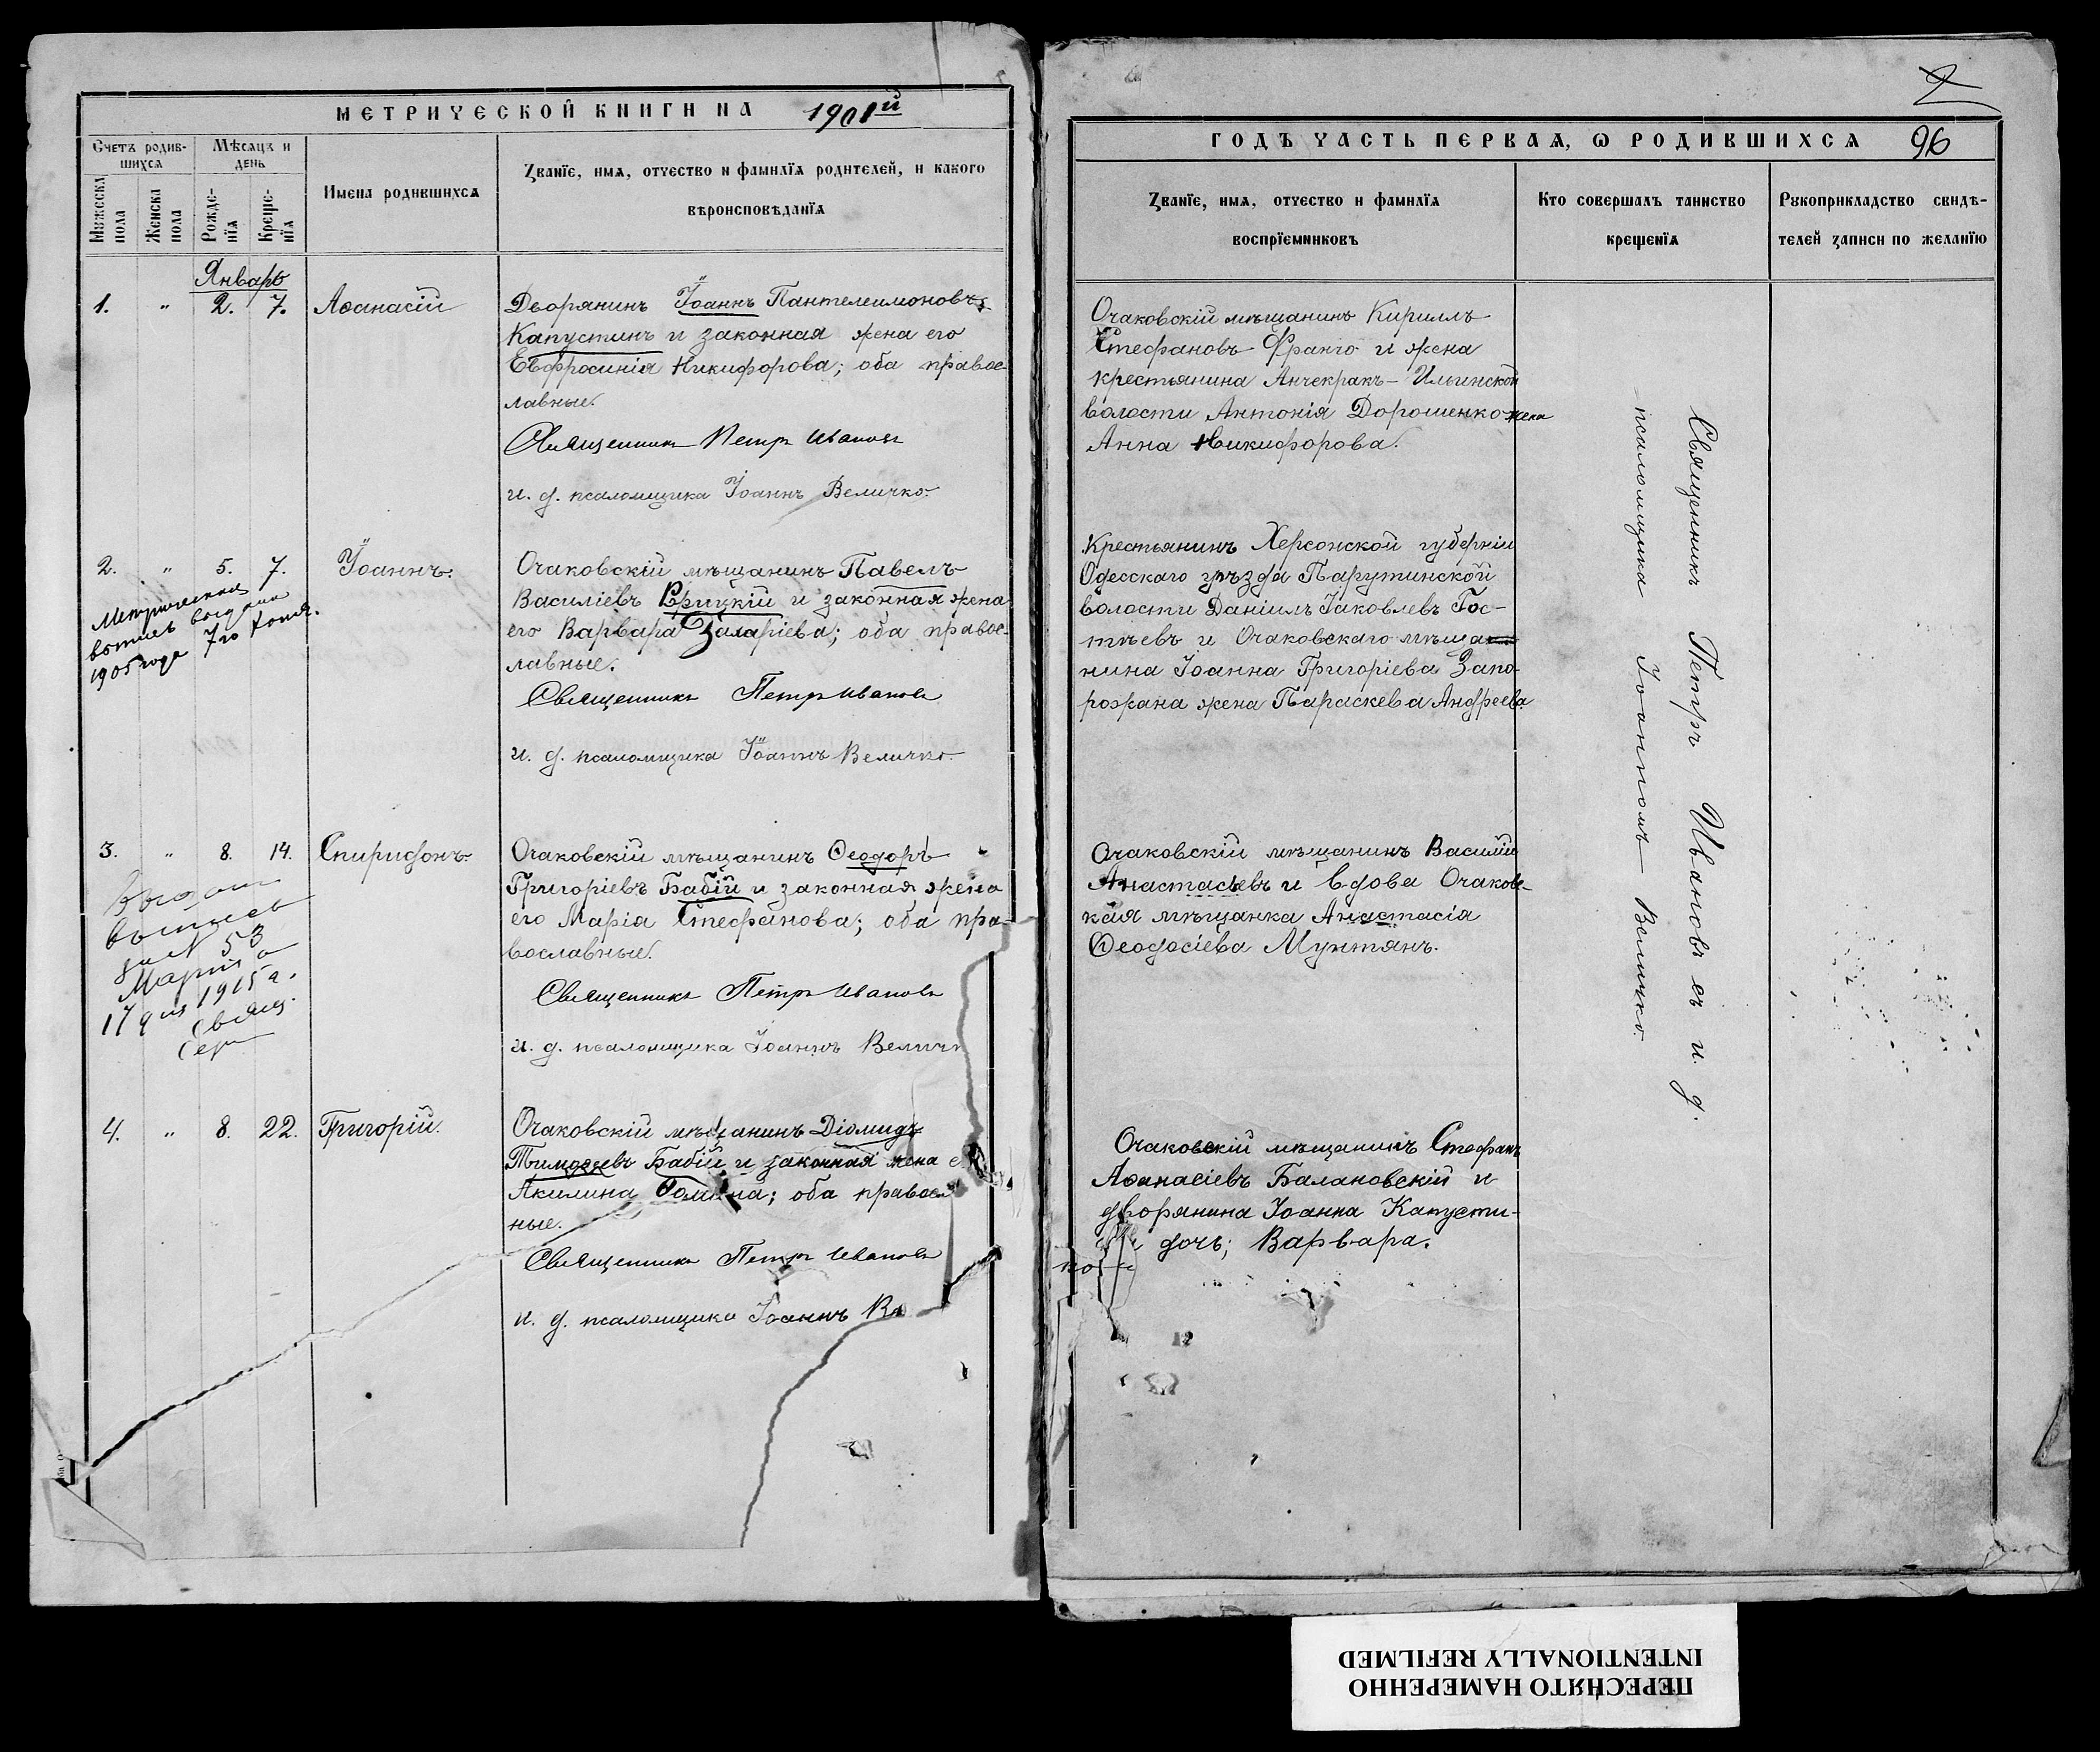 МЕТРИЧЕСКОЙ КНИГИ НА 1901й
Счетъ родив-
шихся
Мѣсяцъ и
день
Мужеска
пола
Женска
пола
Рожде-
нїя
Креще-
нїя
Имена родившихся
Званїе, имя, отчество и фамилїя родителей, и какого
вѣроисповѣданїя
Январь
1. " 2. 7. Аѳанасій
Дворянинъ Іоаннъ Пантелеимоновъ
Капустинъ и законная жена его
Евфросинія Никифорова; оба правос-
лавные.
Священникъ Петръ Ивановъ
и. д. псаломщика Іоаннъ Величко.
2. " 5. 7. Іоаннъ.
Метрическая
выпись выдана
1905 года 7го
Очаковскій мѣщанинъ Павелъ
Василіевъ и законная жена
его Варвара Захаріева; оба правос-
лавные.
Священникъ Петръ Ивановъ
и. д. псаломщика Іоаннъ Величко.
3. " 8. 14. Спиридонъ
выпись
за N 53
Марта
17 дня 1915 г.
Свящ.
Очаковскій мѣщанинъ Ѳеодоръ
Григоріевъ Бабій и законная жена
его Марія Стефанова; оба пра-
вославные.
Священникъ Петръ Ивановъ
и. д. псаломщика Іоаннъ Велич
4. " 8. 22. Григорій.
Очаковскій мѣщанинъ Діомидъ
Тимоѳеевъ Бабій и законная жена е
Акилина оба правосл
ные.
Священникъ Петръ Ивановъ
и. д. псаломщика Іоаннъ Ве
2
ГОДЪ ЧАСТЬ ПЕРВАЯ, Ѡ РОДИВШИХСЯ 96
Званїе, имя, отчество и фамилїя
воспрїемниковъ
Кто совершалъ таинство
крещенїя
Рукоприкладство свидѣ-
телей записи по желанїю
Очаковскій мѣщанинъ Кириллъ
Стефановъ Франго и жена
крестьянина Анчекракъ-Ильинской
волости Антонія Дорошенко жена
Анна Никифорова.
Крестьянинъ Херсонской губерніи
Одесскаго уѣзда Парутинской
волости Даніилъ Іаковлевъ Гос-
тѣевъ и Очаковскаго мѣща
нина Іоанна Григоріева Запо-
рожана жена Параскева Андреева
Очаковскій мѣщанинъ Василій
Анастасьевъ и вдова Очаковс-
кая мѣщанка Анастасія
Ѳеодосіева Мунтянъ.
Очаковскій мѣщанинъ Стефанъ
Аѳанасіевъ Балановскій и
дворянина Іоанна Капусти-
дочь; Варвара.
Священникъ Петръ Ивановъ съ и. д.
псаломщика Іоанномъ Величко.
ПЕРЕСНЯТО НАМЕРЕННО
INTENTIONALLY REFILMED